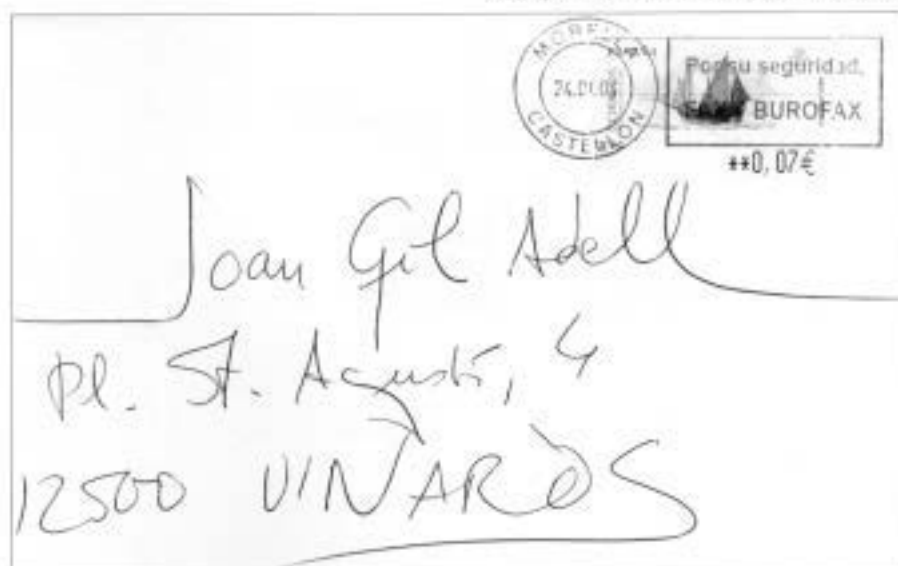 MORELLA
24.01.0
CASTELLON
Por su seguridad,
BUROFAX
**0,07€
Joan Gil Adell
Pl. St. Agustí, 4
12500 VINARÒS